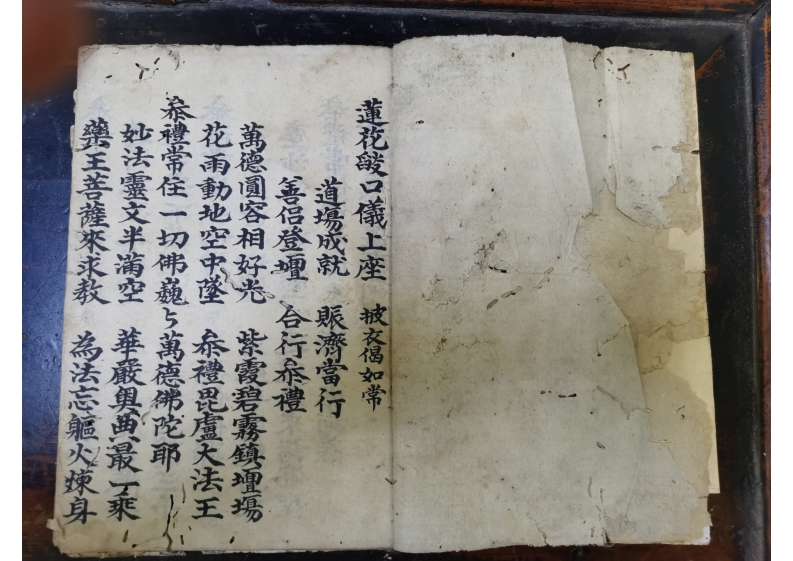 蓮花燄口儀上座 披衣偈如常
道場成就 賑濟當行
善侶登壇 合行叅禮
萬德圓容相好光 紫霞碧霧鎮壇場
花雨動地空中墜 叅禮毘盧大法王
叅禮常住一切佛巍々萬德佛陀耶
妙法靈文半滿空 華嚴奧典最一乘
藥王菩薩來求教 為法忘軀火煉身